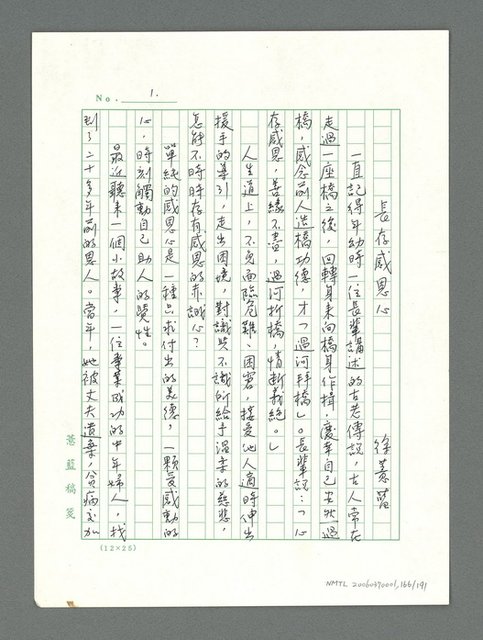 No. 1.
長存感恩心
徐薏藍
一直記得年幼時一位長輩講述的古老傳說,古人常在
走過一座橋之後,回轉身來向橋身作揖,慶幸自己安然過
橋,感念前人造橋功德,才「過河拜橋」。長輩說:「心
存感恩,善緣不盡,過河拆橋,情斷義絕。」
人生道上,不免面臨危難、困窘,接受他人適時伸出
援手的牽引,走出困境,對識與不識所給予溫柔的慈悲,
怎能不時時存有感恩的赤誠心?
單純的感恩心是一種只求付出的美德,一顆受感動的
心,時刻觸動自己助人的質性。
最近聽來一個小故事,一位事業成功的中年婦人,找
到了二十多年前的恩人。當年,她被丈夫遺棄,貧病交加
薏藍稿箋
(12×25)
NMTL 20060370001,166/191